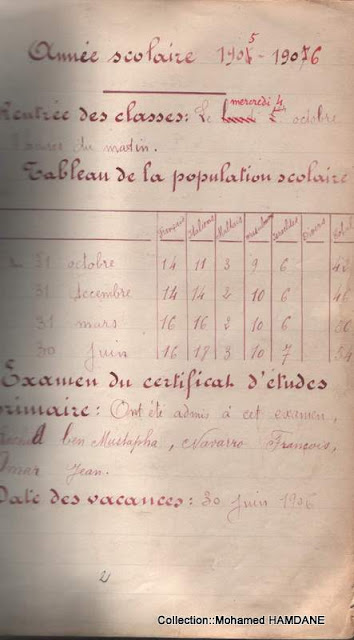 Année scolaire 1905 - 1906
Rentrée des classes: Le mercredi 4 octobre
heures du matin.
Tableau de la population scolaire
Français Italiens Maltais Musulmans Israélites Divers Total
31 octobre 14 11 3 9 6
31 décembre 14 14 2 10 6 46
31 mars 16 16 2 10 6
30 Juin 16 18 3 10 7 54
Examen du certificat d'études
primaire: Ont été admis à cet examen,
ben Mustapha, Navarro François,
Jean.
Date des vacances: 30 Juin 1906
2
Collection::Mohamed HAMDANE